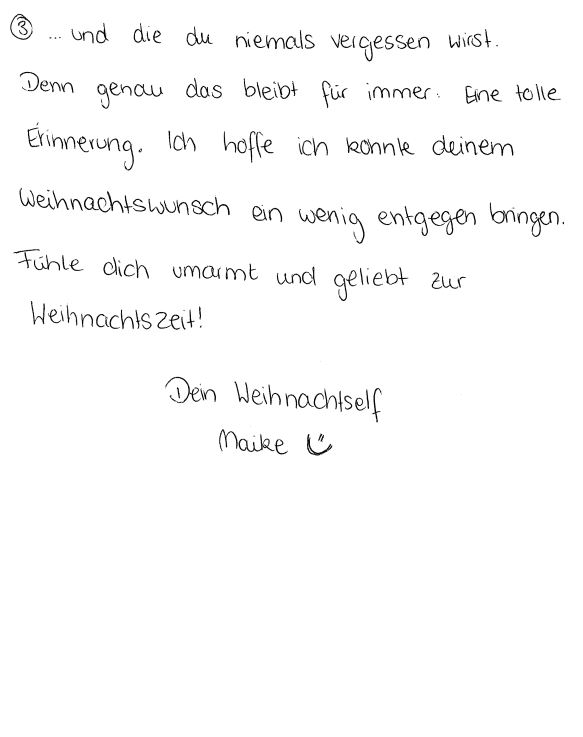 ③ ... und die du niemals vergessen wirst.
Denn genau das bleibt für immer. Eine tolle
Erinnerung. Ich hoffe ich konnte deinem
Weihnachtswunsch ein wenig entgegen bringen.
Fühle dich umarmt und geliebt zur
Weihnachtszeit!
Dein Weihnachtself
Maike ☺